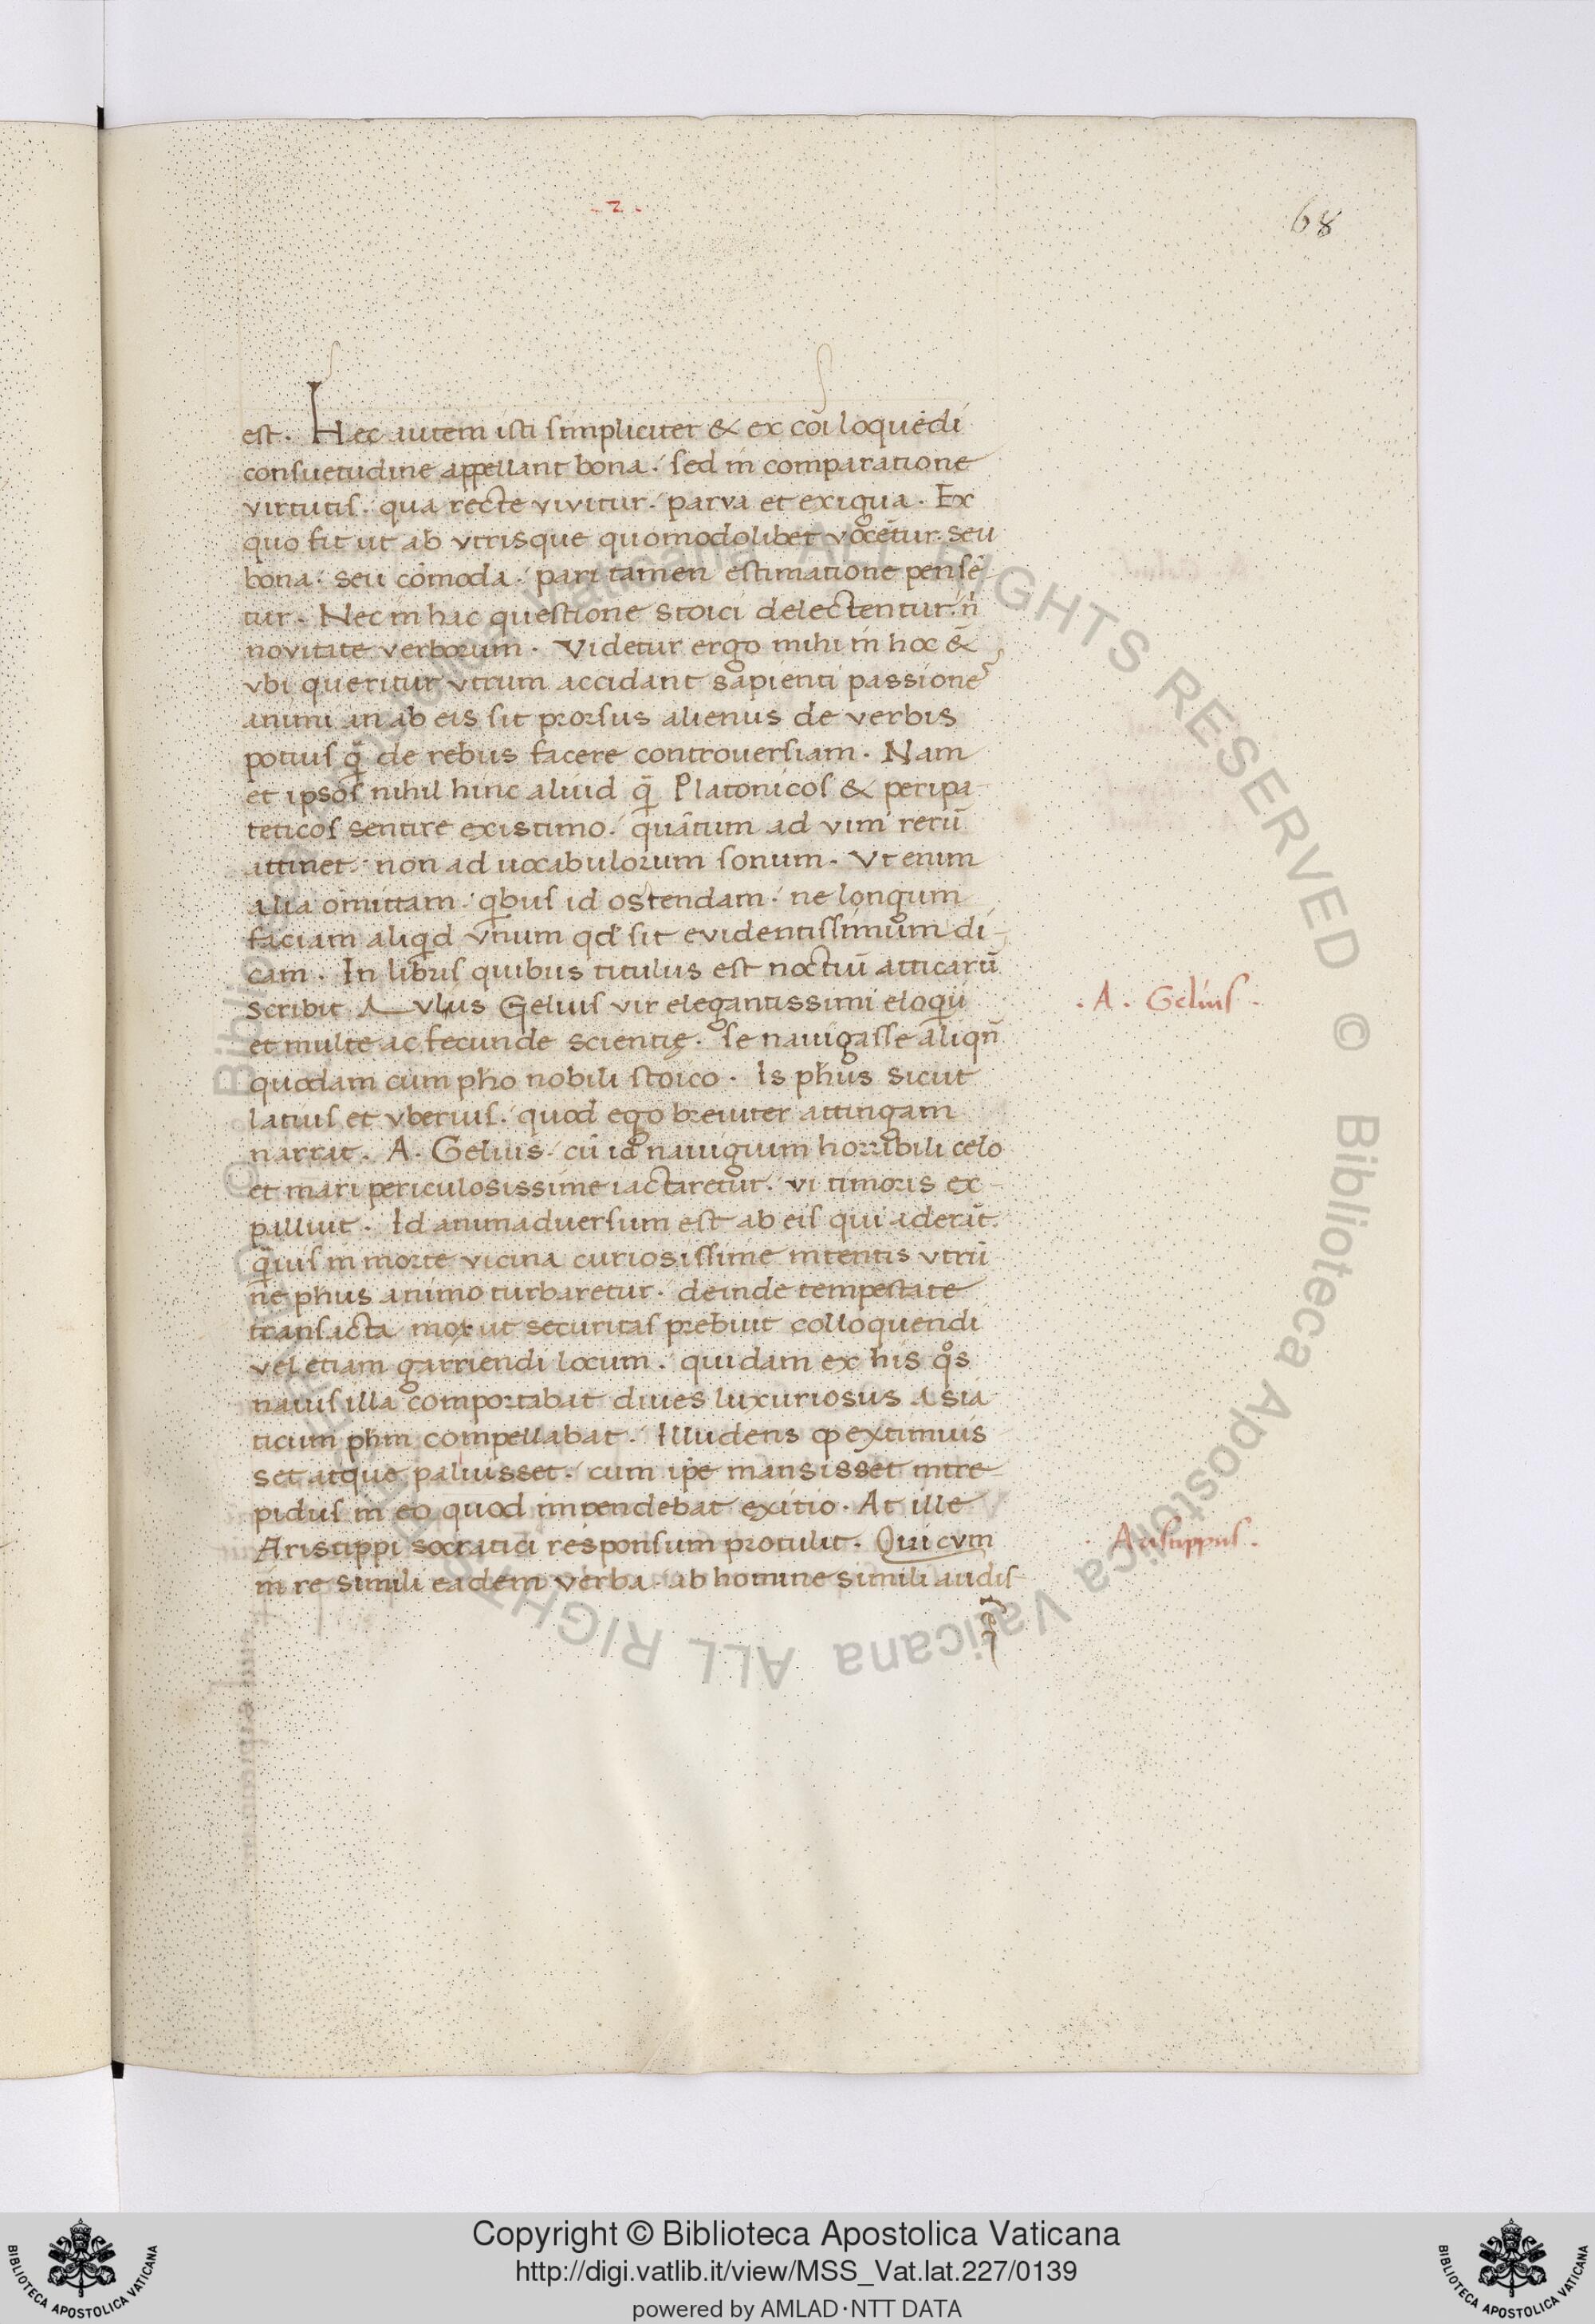 . 2 .
68
est. Hec autem isti simpliciter & ex cōi loquēdi
consuetudine appellant bona. sed in comparatione
virtutis. qua recte vivitur. parva et exigua. Ex
quo fit ut ab vtrisque quomodolibet vocētur. seu
bona. seu cōmoda. pari tamen estimatione pensē-
tur. Nec in hac questione stoici delectentur. ñ
novitate verborum. Videtur ergo mihi in hoc &
vbi queritur vtrum accidant sapienti passione
animi an ab eis sit prorsus alienus de verbis
potius q̄ de rebus facere controuersiam. Nam
et ipsos nihil hinc aliud q̄ Platonicos & peripa
teticos sentire existimo. quātum ad vim rerū
attinet. non ad uocabulorum sonum. Vt enim
alia omittam. qbus id ostendam. ne longum
faciam aliqd vnum qd sit evidentissimum di-
cam. In libris quibus titulus est noctiū atticarū
scribit Aulus Gelius vir elegantissimi eloqii
et multe ac fecunde scientię. se nauigasse aliqñ
quodam cum pho nobili stoico. Is phus sicut
latius et vberius. quod ego breuiter attingam
narrat. A. Gelius. cū id nauigium horribili celo
et mari periculosissime iactaretur. vi timoris ex-
palluit. Id animaduersum est ab eis qui aderāt.
q̄uis in morte vicina curiosissime intentis vtrū
ne phus animo turbaretur. deinde tempestate
transacta mox ut securitas prebuit colloquendi
vel etiam garriendi locum. quidam ex his qos
nauis illa comportabat diues luxuriosus Asia
ticum phm compellabat. Illudens ꝙ extimuis
set atque paluisset. cum ipe mansisset intre-
pidus in eo quod impendebat exitio. At ille
Aristippi socratici responsum protulit. Qui cvm
in re simili eadem verba ab homine simili audis
. A. Gelius.
Aristippus.
Copyright © Biblioteca Apostolica Vaticana
http://digi.vatlib.it/view/MSS_Vat.lat.227/0139
powered by AMLAD·NTT DATA
BIBLIOTECA APOSTOLICA VATICANA
BIBLIOTECA APOSTOLICA VATICANA
© Biblioteca Apostolica Vaticana ALL RIGHTS RESERVED © Biblioteca Apostolica Vaticana ALL RIGHTS RESERVED